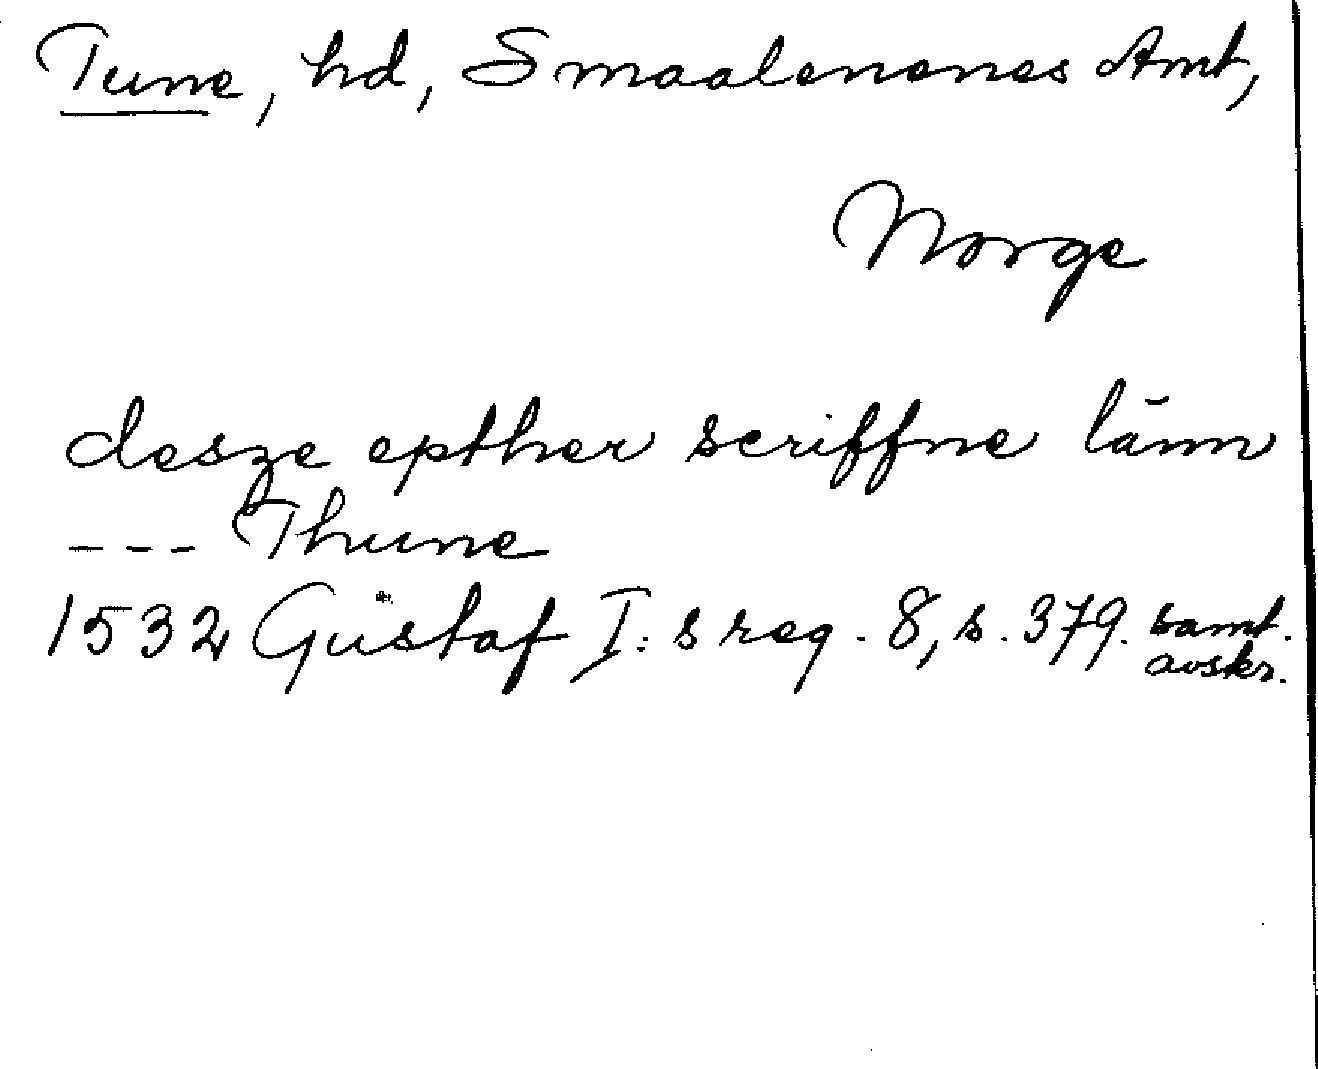 Tune, hd, Smaalenenes Amt,
Norge
desze epther scriffne länn
--- Thune
1532 Gustaf I:s reg. 8, s. 379. samt.
avskr.